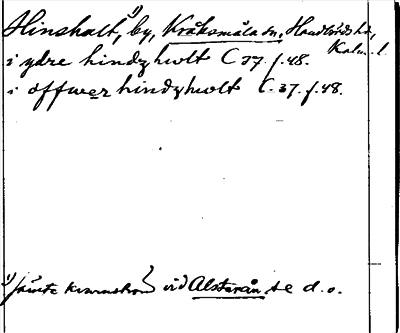 Hinshalt,¹⁾ by, Kråksmåla sn, Handbörds hd,
Kalm. l.
i ydre hindzhwlt C 37. f. 48.
i offwer hindzhwolt C. 37. f. 48.
¹⁾ jämte kvarnström vid Alsterån se d. o.